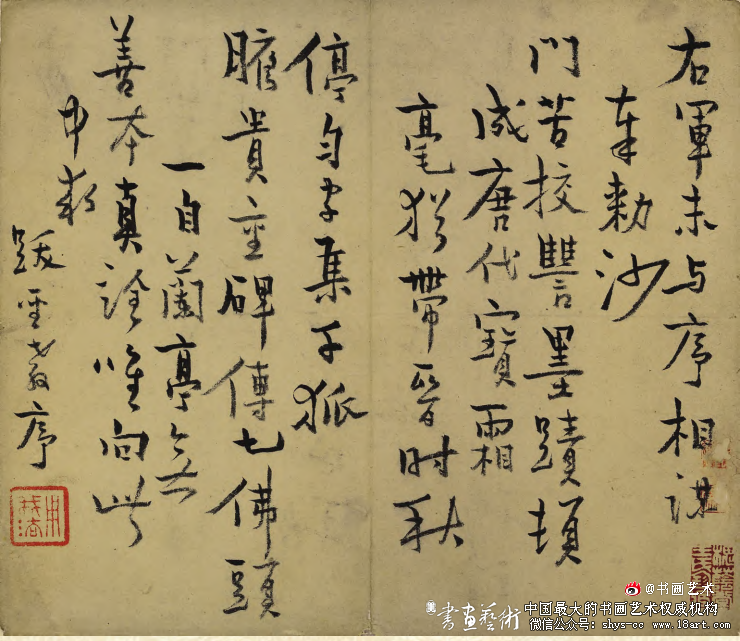 右軍未与序相謀
奉勅沙
門苦挍讐墨蹟頓
成唐代寶霜
毫猶帶晉时秋
停勻字集千狐
腋貴重碑傳七佛頭
一自蘭亭無
善本真詮唯向此
中求
跋聖教序
@书画艺术
書画藝術
中国最大的书画艺术权威机构
微信公众号: shys-cc www.18art.com